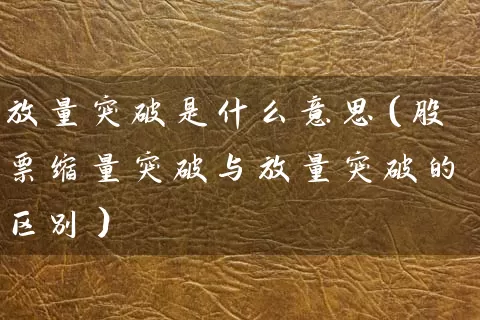 放量突破是什么意思(股
票缩量突破与放量突破的
区别)